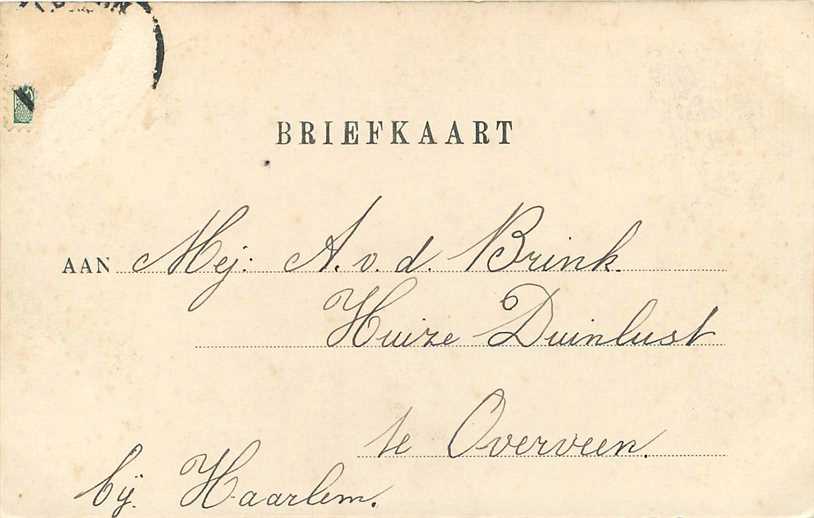 BRIEFKAART
AAN Mej: A. v. d. Brink
Huize Duinlust
te Overveen.
bij Haarlem.